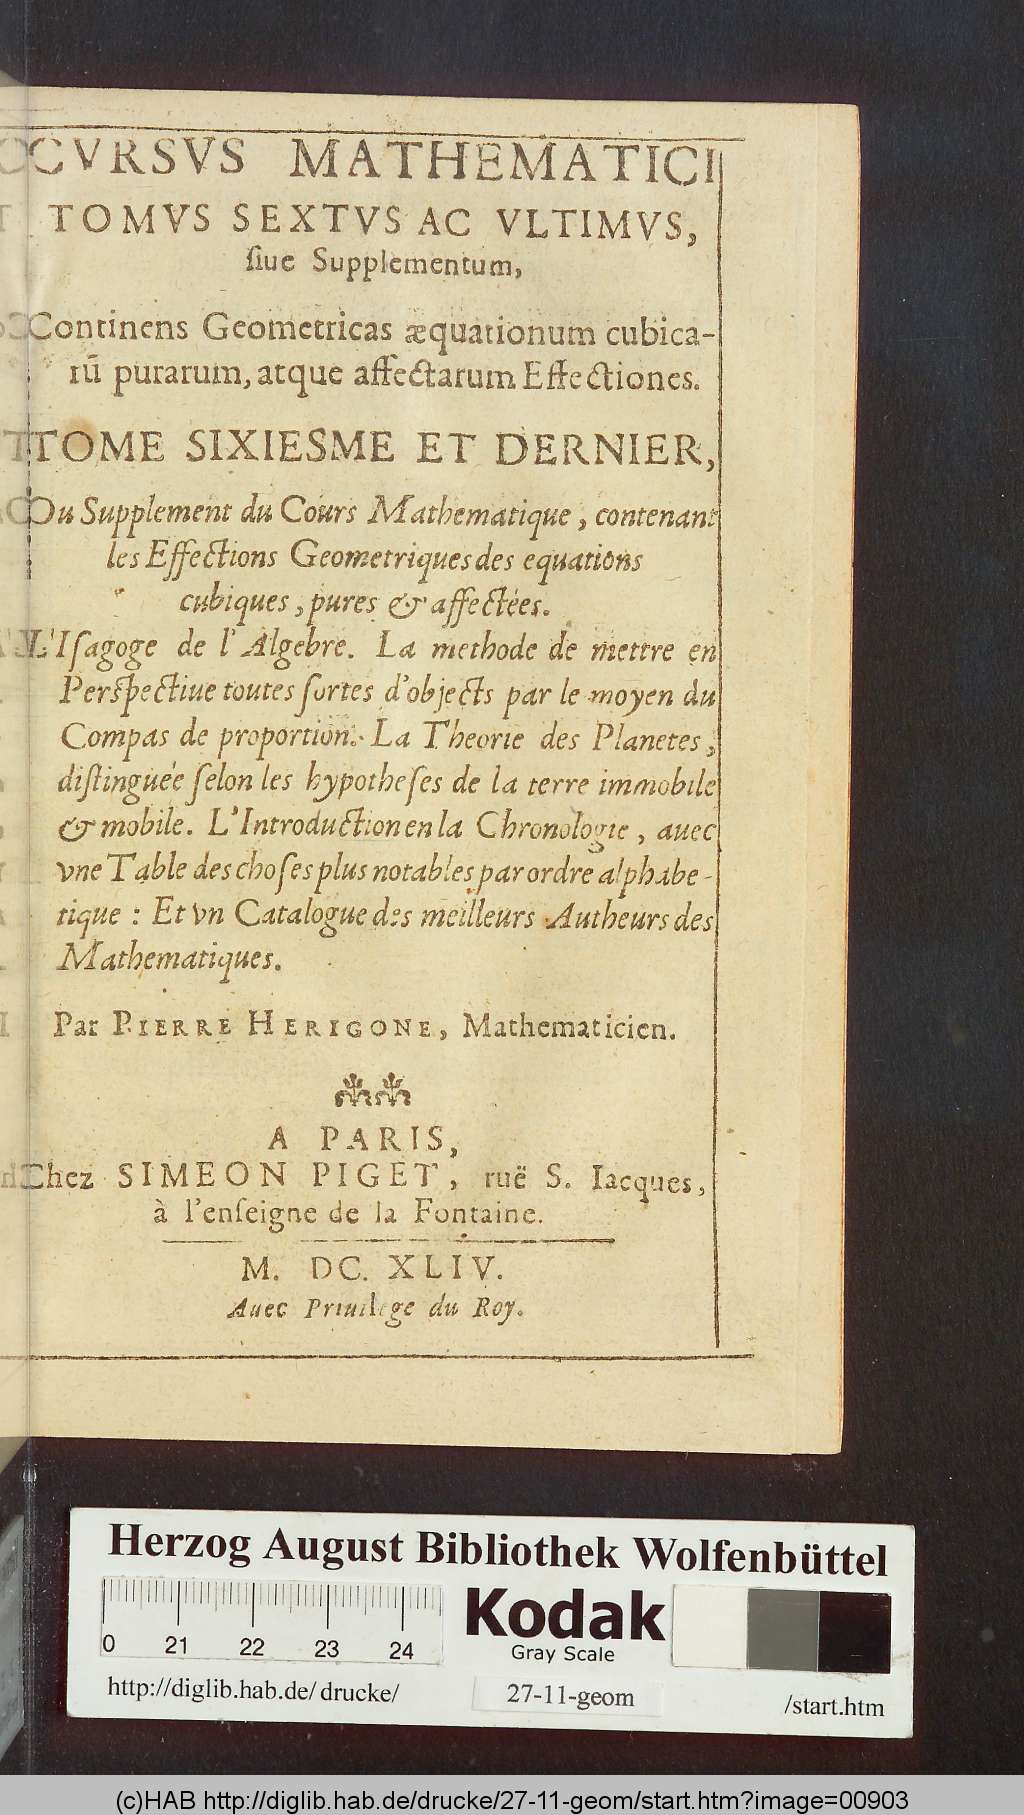 CVRSVS MATHEMATICI
TOMVS SEXTVS AC VLTIMVS,
ſiue Supplementum,
Continens Geometricas æquationum cubica-
rū purarum, atque affectarum Effectiones.
TOME SIXIESME ET DERNIER,
Ou Supplement du Cours Mathematique, contenant
les Effections Geometriques des equations
cubiques, pures & affectées.
L'Iſagoge de l'Algebre. La methode de mettre en
Perſpectiue toutes ſortes d'objects par le moyen du
Compas de proportion. La Theorie des Planetes,
diſtinguée ſelon les hypotheſes de la terre immobile
& mobile. L'Introduction en la Chronologie, auec
vne Table des choſes plus notables par ordre alphabe-
tique : Et vn Catalogue des meilleurs Autheurs des
Mathematiques.
Par PIERRE HERIGONE, Mathematicien.
A PARIS,
Chez SIMEON PIGET, ruë S. Iacques,
à l'enſeigne de la Fontaine.
M. DC. XLIV.
Auec Priuilege du Roy.
Herzog August Bibliothek Wolfenbüttel
Kodak
Gray Scale
0 21 22 23 24
http://diglib.hab.de/drucke/ 27-11-geom /start.htm
(c)HAB http://diglib.hab.de/drucke/27-11-geom/start.htm?image=00903